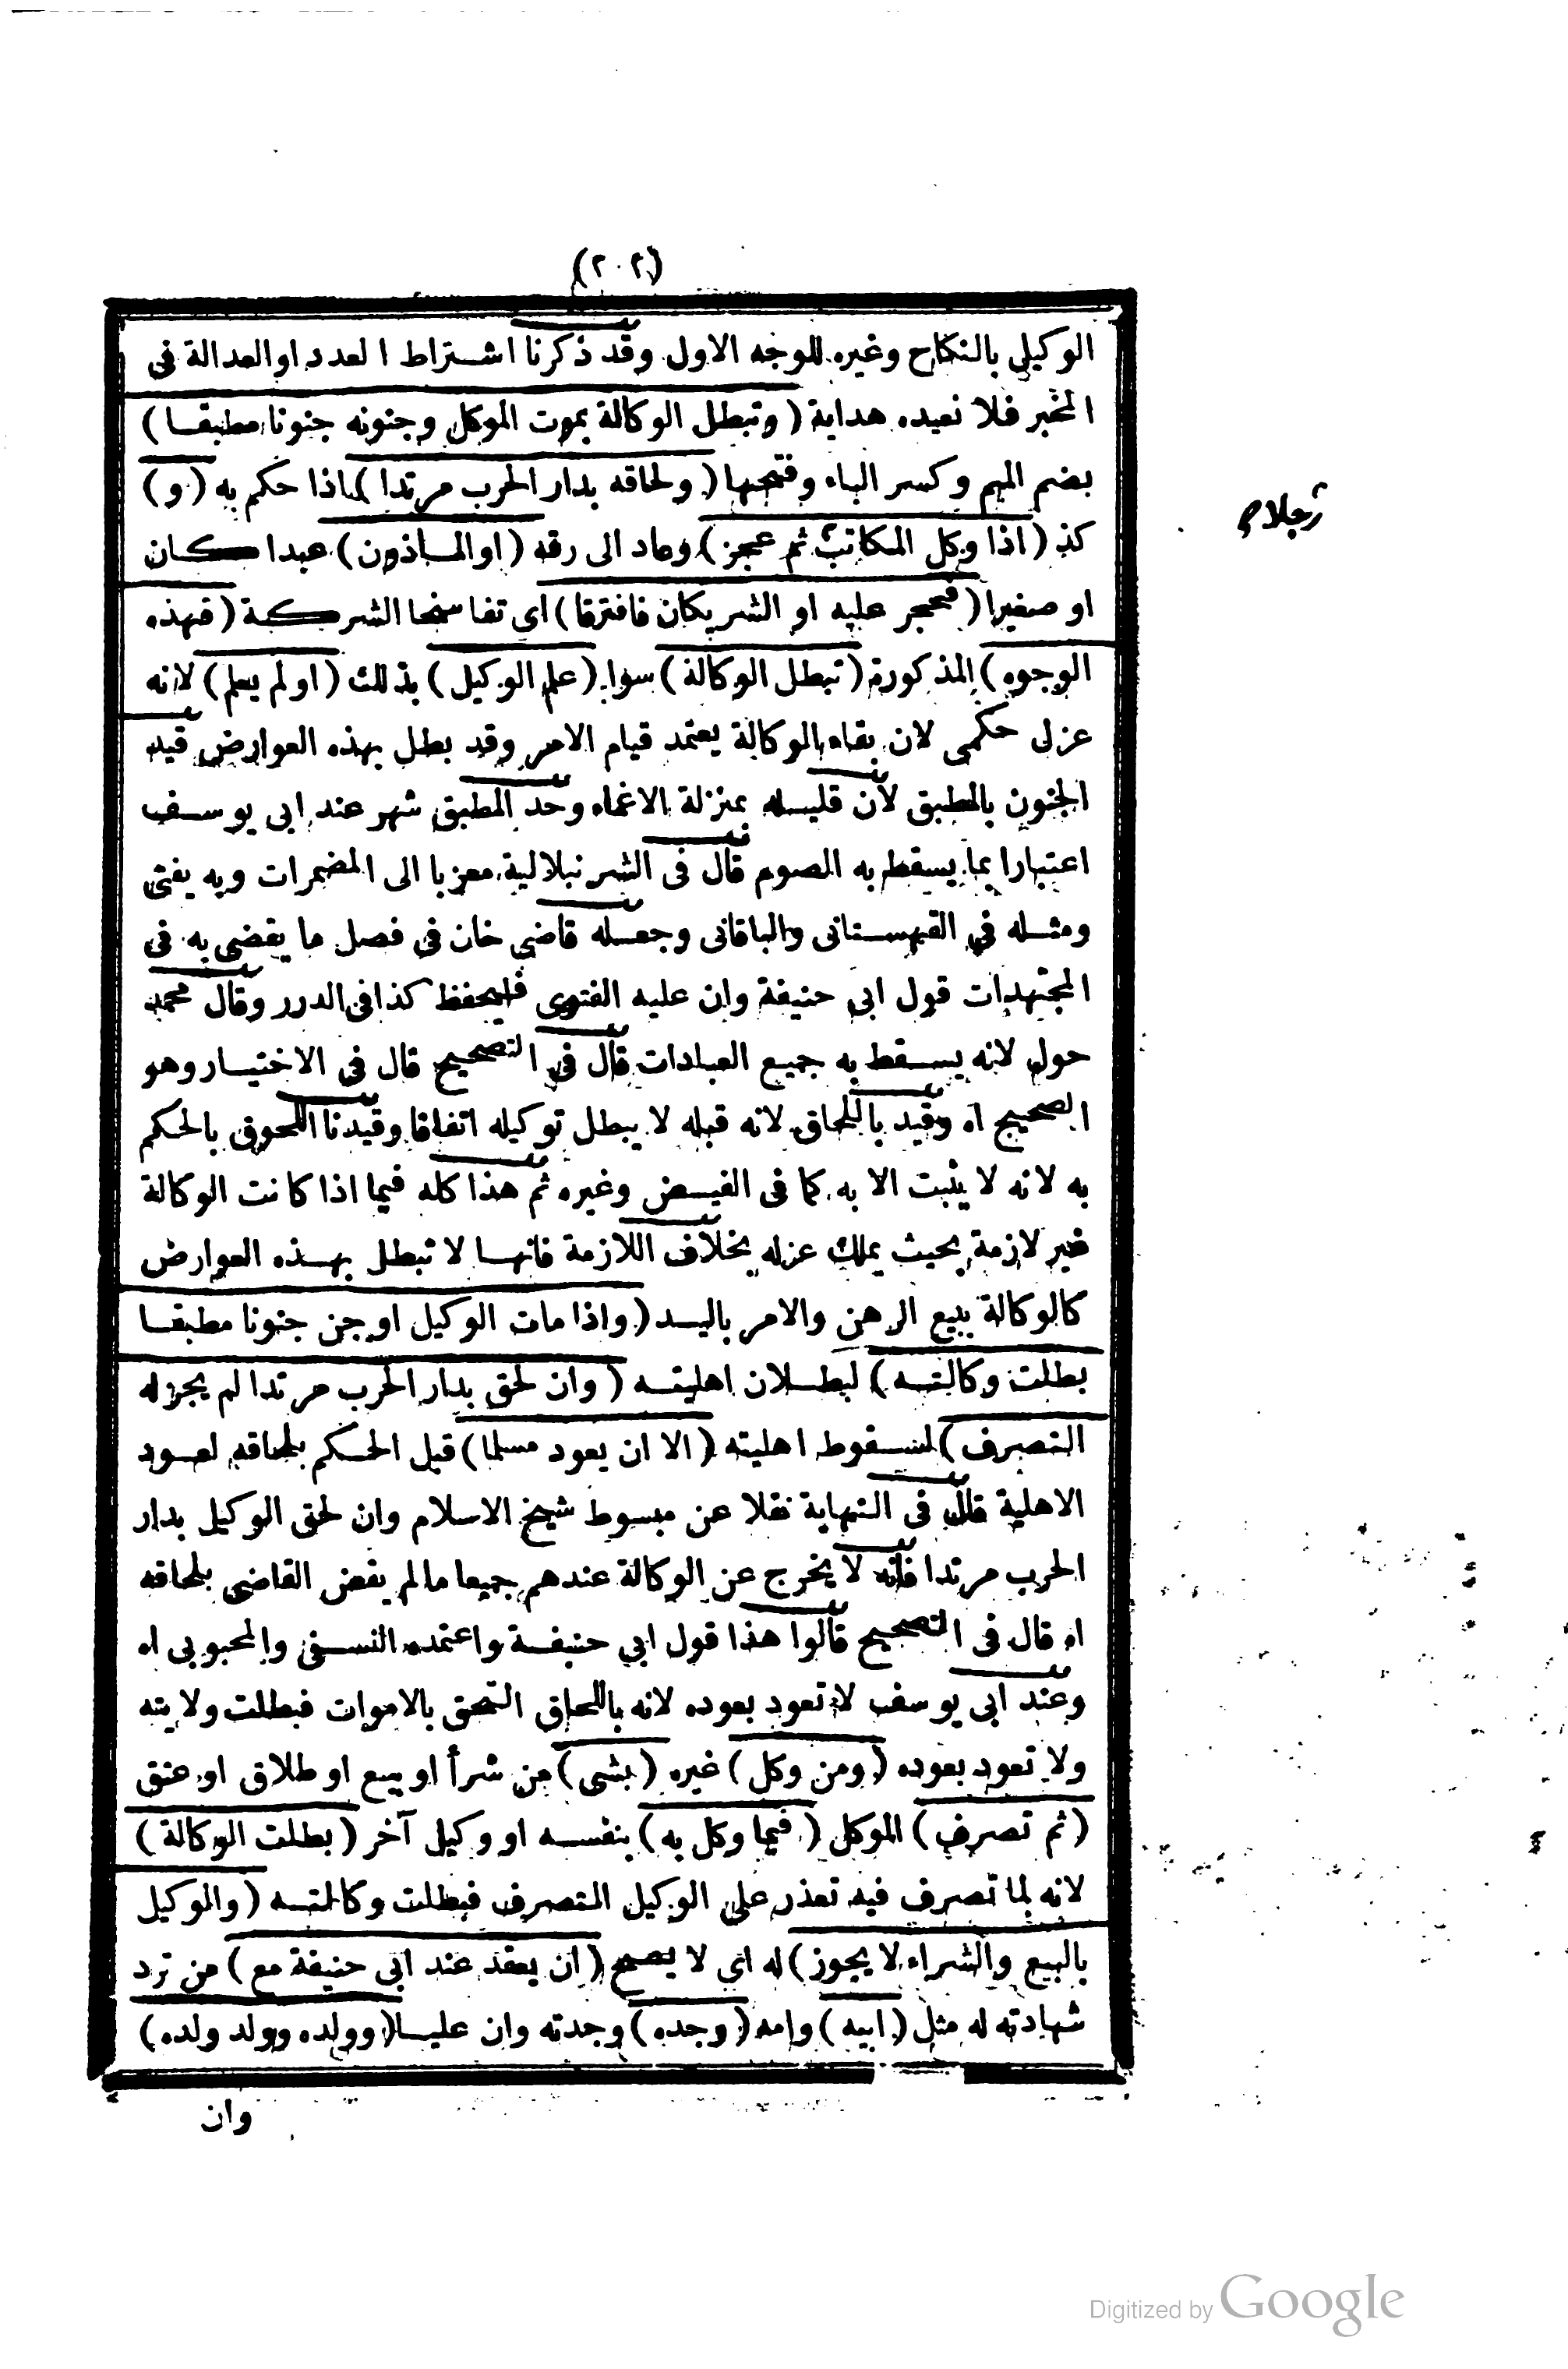 (٢٠٢)
الوكيل بالنكاح وغيره للوجه الاول وقد ذكرنا اشتراط العدد او العدالة فى
المخبر فلا نعيده هداية (وتبطل الوكالة بموت الموكل وجنونه جنونا مطبقا)
بضم الميم وكسر الباء وفتحها (ولحاقه بدار الحرب مرتدا) اذا حكم به (و)
كذ (اذا وكل المكاتب ثم عجز) وعاد الى رقه (او المأذون) عبدا كان
او صغيرا (فحجر عليه او الشريكان فافترقا) اى تفاسخا الشركة (فهذه
الوجوه) المذكورة (تبطل الوكالة) سواء (علم الوكيل) بذلك (او لم يعلم) لانه
عزل حكمى لان بقاء الوكالة يعتمد قيام الامر وقد بطل بهذه العوارض قيد
الجنون بالمطبق لأن قليله بمنزلة الاغماء وحد المطبق شهر عند ابى يوسف
اعتبارا بما يسقط به الصوم قال فى الشرنبلالية معزيا الى المضمرات وبه يفتى
ومثله فى القهستانى والباقانى وجعله قاضى خان فى فصل ما يقضى به فى
المجتهدات قول ابى حنيفة وان عليه الفتوى فليحفظ كذا فى الدرر وقال محمد
حول لانه يسقط به جميع العبادات قال فى التصحيح قال فى الاختيار وهو
الصحيح اه وقيد باللحاق لانه قبله لا يبطل توكيله اتفاقا وقيدنا اللحوق بالحكم
به لانه لا يثبت الا به كما فى الفيض وغيره ثم هذا كله فيما اذا كانت الوكالة
غير لازمة بحيث يملك عزله بخلاف اللازمة فانها لا تبطل بهذه العوارض
كالوكالة ببيع الرهن والامر باليد (واذا مات الوكيل او جن جنونا مطبقا
بطلت وكالته) لبطلان اهليته (وان لحق بدار الحرب مرتدا لم يجز له
التصرف) لسقوط اهليته (الا ان يعود مسلما) قبل الحكم بلحاقه لعود
الاهلية قال فى النهاية نقلا عن مبسوط شيخ الاسلام وان لحق الوكيل بدار
الحرب مرتدا فانه لا يخرج عن الوكالة عندهم جميعا مالم يقض القاضى بلحاقه
اه قال فى التصحيح قالوا هذا قول ابى حنيفة واعتمده النسفى والمحبوبى اه
وعند ابى يوسف لا تعود بعوده لانه باللحاق التحق بالاموات فبطلت ولايته
ولا تعود بعوده (ومن وكل) غيره (بشى) من شرأ او بيع او طلاق او عتق
(ثم تصرف) الموكل (فيما وكل به) بنفسه او وكيل آخر (بطلت الوكالة)
لانه لما تصرف فيه تعذر على الوكيل التصرف فبطلت وكالته (والوكيل
بالبيع والشراء لا يجوز) له اى لا يصح (ان يعقد عند ابى حنيفة مع) من ترد
شهادته له مثل (ابيه) وامه (وجده) وجدته وان عليا (وولده وولد ولده)
وان
Digitized by Google